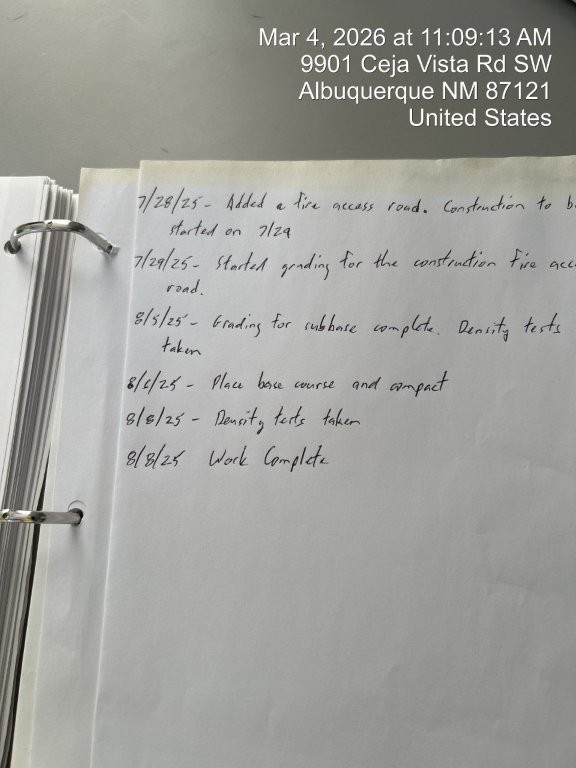 Mar 4, 2026 at 11:09:13 AM
9901 Ceja Vista Rd SW
Albuquerque NM 87121
United States
7/28/25 - Added a fire access road. Construction to b
started on 7/29
7/29/25 - Started grading for the construction fire acc
road.
8/5/25 - Grading for subbase complete. Density tests
taken
8/6/25 - Place base course and compact
8/8/25 - Density tests taken
8/8/25 Work Complete